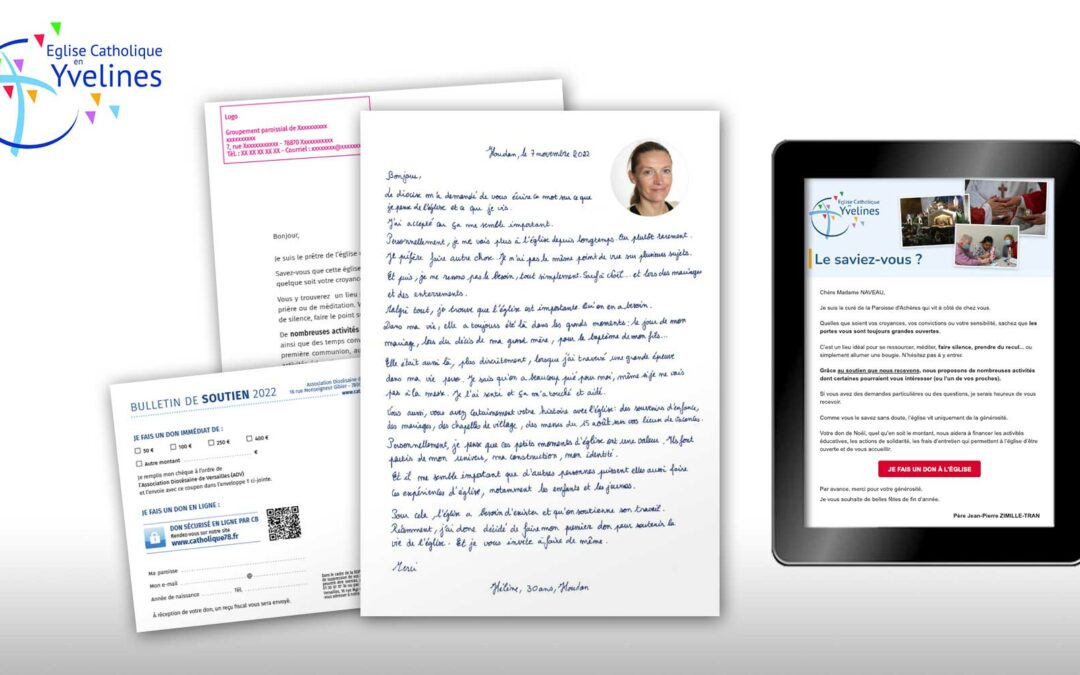 Eglise Catholique
en
Yvelines
Logo
Groupement paroissial de Xxxxxxxxxx
xxxxxxxxxx
7, rue Xxxxxxxxxxxx - 78870 Xxxxxxxxxxx
Tél. : XX XX XX XX XX - Courriel : xxxxxxxx@xxxxx
Bonjour,
Je suis le prêtre de l'église
Savez-vous que cette église
quelque soit votre croyance
Vous y trouverez un lieu
prière ou de méditation. V
de silence, faire le point s
De nombreuses activités
ainsi que des temps conv
première communion, au
BULLETIN DE SOUTIEN 2022
Association Diocésaine de
16 rue Monseigneur Gibier - 780
www.cat
JE FAIS UN DON IMMÉDIAT DE :
50 € 100 € 250 € 400 €
Autre montant €
Je remplis mon chèque à l'ordre de
l'Association Diocésaine de Versailles (ADV)
et l'envoie avec ce coupon dans l'enveloppe T ci-jointe.
JE FAIS UN DON EN LIGNE :
DON SÉCURISÉ EN LIGNE PAR CB
Rendez-vous sur notre site
www.catholique78.fr
Ma paroisse
Mon e-mail @
Année de naissance TÉL.
À réception de votre don, un reçu fiscal vous sera envoyé.
Houdan, le 7 novembre 2022
Bonjour,
Le diocèse m'a demandé de vous écrire ce mot sur ce que
je pense de l'église et ce que je vis.
J'ai accepté car ça me semble important.
Personnellement, je ne vais plus à l'église depuis longtemps. Ou plutôt rarement.
Je préfère faire autre chose. Je n'ai pas le même point de vue sur plusieurs sujets.
Et puis, je ne ressens pas le besoin, tout simplement. Sauf à Noël... et lors des mariages
et des enterrements.
Malgré tout, je trouve que l'église est importante. Qu'on en a besoin.
Dans ma vie, elle a toujours été là dans les grands moments : le jour de mon
mariage, lors du décès de ma grand mère, pour le baptême de mon fils...
Elle était aussi là, plus discrètement, lorsque j'ai traversé une grande épreuve
dans ma vie perso. Je sais qu'on a beaucoup prié pour moi, même si je ne vais
pas à la messe. Je l'ai senti et ça m'a touché et aidé.
Vous aussi, vous avez certainement votre histoire avec l'église : des souvenirs d'enfance,
des mariages, des chapelles de village, des messes du 15 août sur vos lieux de vacances.
Personnellement, je pense que ces petits moments d'église ont une valeur. Ils font
partis de mon univers, ma construction, mon identité.
Et il me semble important que d'autres personnes puissent elles aussi faire
ces expériences d'église, notamment les enfants et les jeunes.
Pour cela, l'église a besoin d'exister et qu'on soutienne son travail.
Récemment, j'ai donc décidé de faire mon premier don pour soutenir la
vie de l'église. Et je vous invite à faire de même.
Merci
Hélène, 30 ans, Houdan
Eglise Catholique
en
Yvelines
Le saviez-vous ?
Chère Madame NAVEAU,
Je suis le curé de la Paroisse d'Achères qui vit à côté de chez vous.
Quelles que soient vos croyances, vos convictions ou votre sensibilité, sachez que les
portes vous sont toujours grandes ouvertes.
C'est un lieu idéal pour se ressourcer, méditer, faire silence, prendre du recul... ou
simplement allumer une bougie. N'hésitez pas à y entrer.
Grâce au soutien que nous recevons, nous proposons de nombreuses activités
dont certaines pourraient vous intéresser (ou l'un de vos proches).
Si vous avez des demandes particulières ou des questions, je serais heureux de vous
recevoir.
Comme vous le savez sans doute, l'église vit uniquement de la générosité.
Votre don de Noël, quel qu'en soit le montant, nous aidera à financer les activités
éducatives, les actions de solidarité, les frais d'entretien qui permettent à l'église d'être
ouverte et de vous accueillir.
JE FAIS UN DON À L'ÉGLISE
Par avance, merci pour votre générosité.
Je vous souhaite de belles fêtes de fin d'année.
Père Jean-Pierre ZIMILLE-TRAN